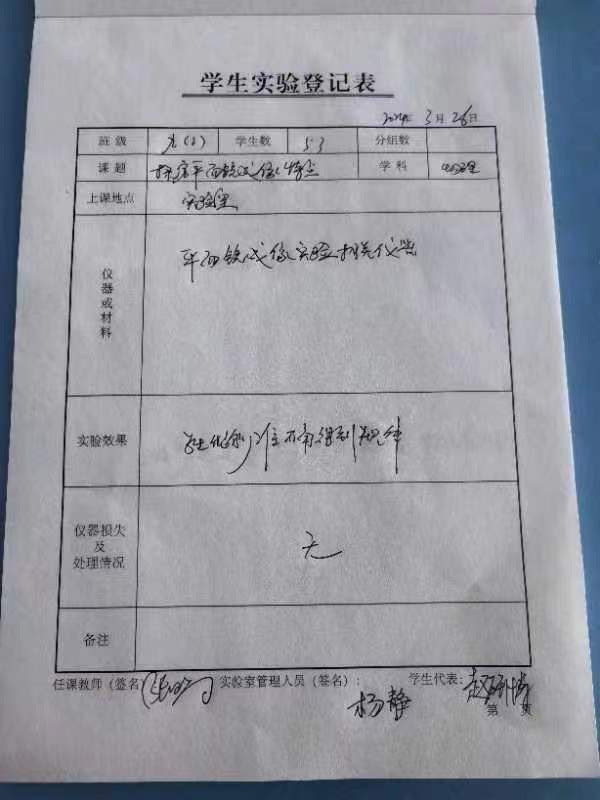 学生实验登记表
2024年3月26日
班级 九(2) 学生数 53 分组数
课题 探究平面镜成像特点 学科 物理
上课地点 实验室
仪器或材料 平面镜成像实验相关仪器
实验效果 得到规律
仪器损失及处理情况 无
备注
任课教师(签名) 实验室管理人员(签名): 杨静 学生代表: 赵
第 页